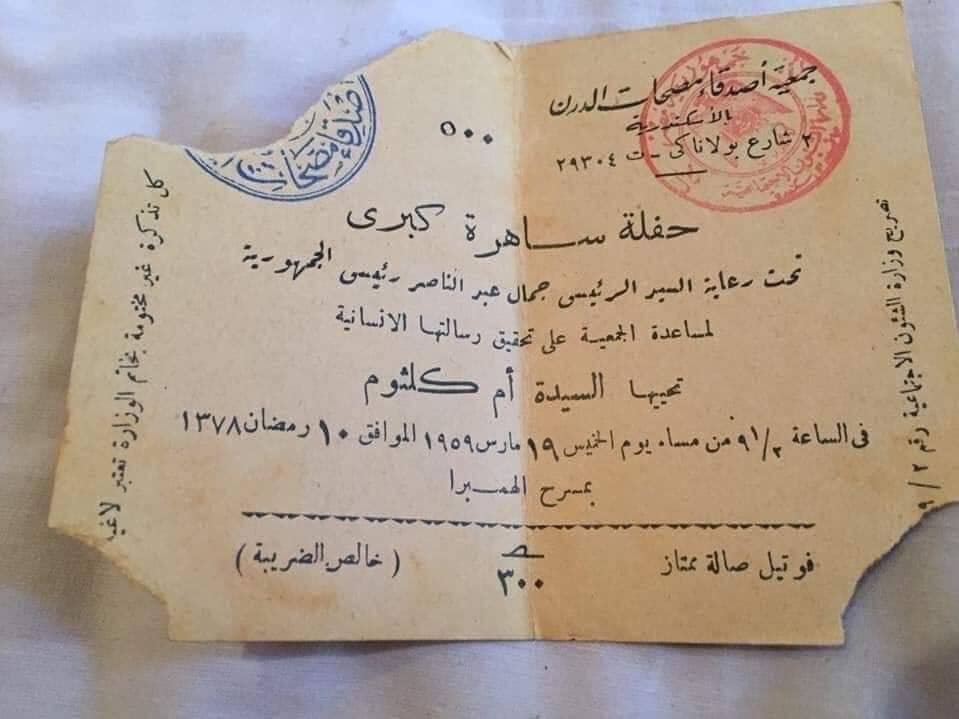 جمعية أصدقاء مصحات الدرن
بالاسكندرية
٢ شارع بولاناكى - ت ٢٩٣٠٤
٥٠٠
أصدقاء مصحات
حفلة ساهرة كبرى
تحت رعاية السيد الرئيس جمال عبد الناصر رئيس الجمهورية
لمساعدة الجمعية على تحقيق رسالتها الانسانية
تحييها السيدة أم كلثوم
فى الساعة ٩١/٢ من مساء يوم الخميس ١٩ مارس ١٩٥٩ الموافق ١٠ رمضان ١٣٧٨
بمسرح الهمبرا
فوتيل صالة ممتاز
٣٠٠
( خالص الضريبة )
تصريح وزارة الشئون الاجتماعية رقم ٢ / ٩
كل تذكرة غير مختومة بخاتم الوزارة تعتبر لاغية